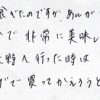 食べたのですが あんが
べで 非常に美味し
野へ行った時は
ずで買ってかえろうと